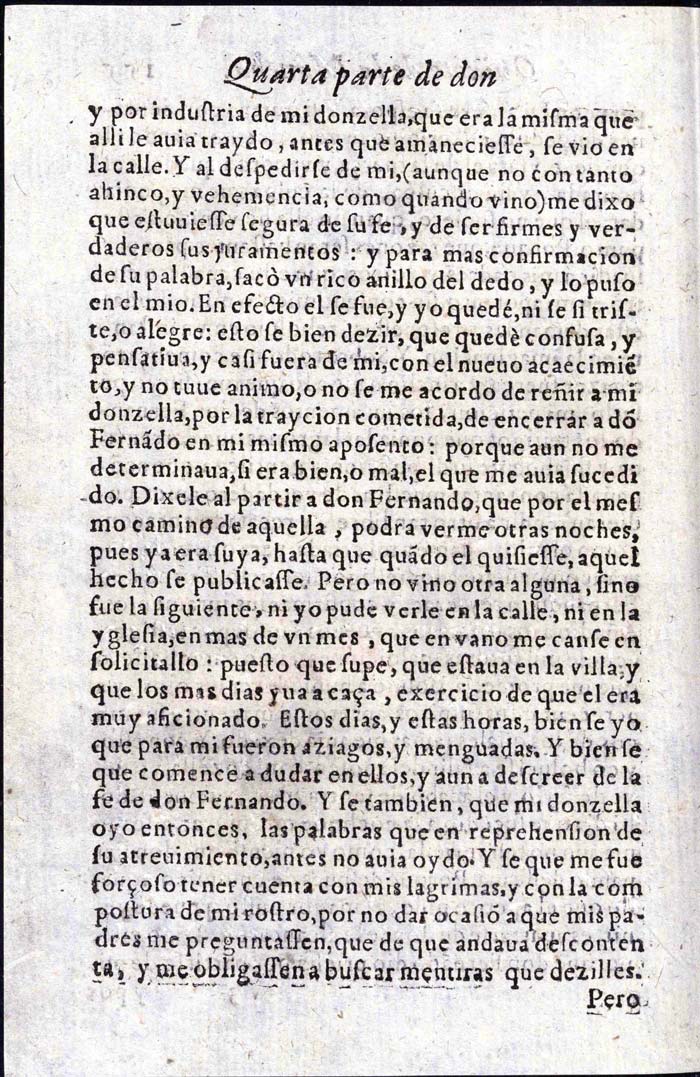 Quarta parte de don
y por industria de mi donzella, que era la misma que
alli le auia traydo, antes que amaneciesse, se vio en
la calle. Y al despedirse de mi, (aunque no con tanto
ahinco, y vehemencia, como quando vino) me dixo
que estuuiesse segura de su fe, y de ser firmes y ver-
daderos sus juramentos: y para mas confirmacion
de su palabra, sacò vn rico anillo del dedo, y lo puso
en el mio. En efecto el se fue, y yo quedé, ni se si tris-
te, o alegre: esto se bien dezir, que quedè confusa, y
pensatiua, y casi fuera de mi, con el nueuo acaecimiẽ
to, y no tuue animo, o no se me acordo de reñir a mi
donzella, por la traycion cometida, de encerrar a dõ
Fernãdo en mi mismo aposento: porque aun no me
determinaua, si era bien, o mal, el que me auia sucedi
do. Dixele al partir a don Fernando, que por el mes
mo camino de aquella, podra verme otras noches,
pues ya era suya, hasta que quãdo el quisiesse, aquel
hecho se publicasse. Pero no vino otra alguna, sino
fue la siguiente, ni yo pude verle en la calle, ni en la
yglesia, en mas de vn mes, que en vano me canse en
solicitallo: puesto que supe, que estaua en la villa, y
que los mas dias yua a caça, exercicio de que el era
muy aficionado. Estos dias, y estas horas, bien se yo
que para mi fueron aziagos, y menguadas. Y bien se
que comence a dudar en ellos, y aun a descreer de la
fe de don Fernando. Y se tambien, que mi donzella
oyo entonces, las palabras que en reprehension de
su atreuimiento, antes no auia oydo. Y se que me fue
forçoso tener cuenta con mis lagrimas, y con la com
postura de mi rostro, por no dar ocasiõ a que mis pa-
dres me preguntassen, que de que andaua desconten
ta, y me obligassen a buscar mentiras que dezilles.
Pero